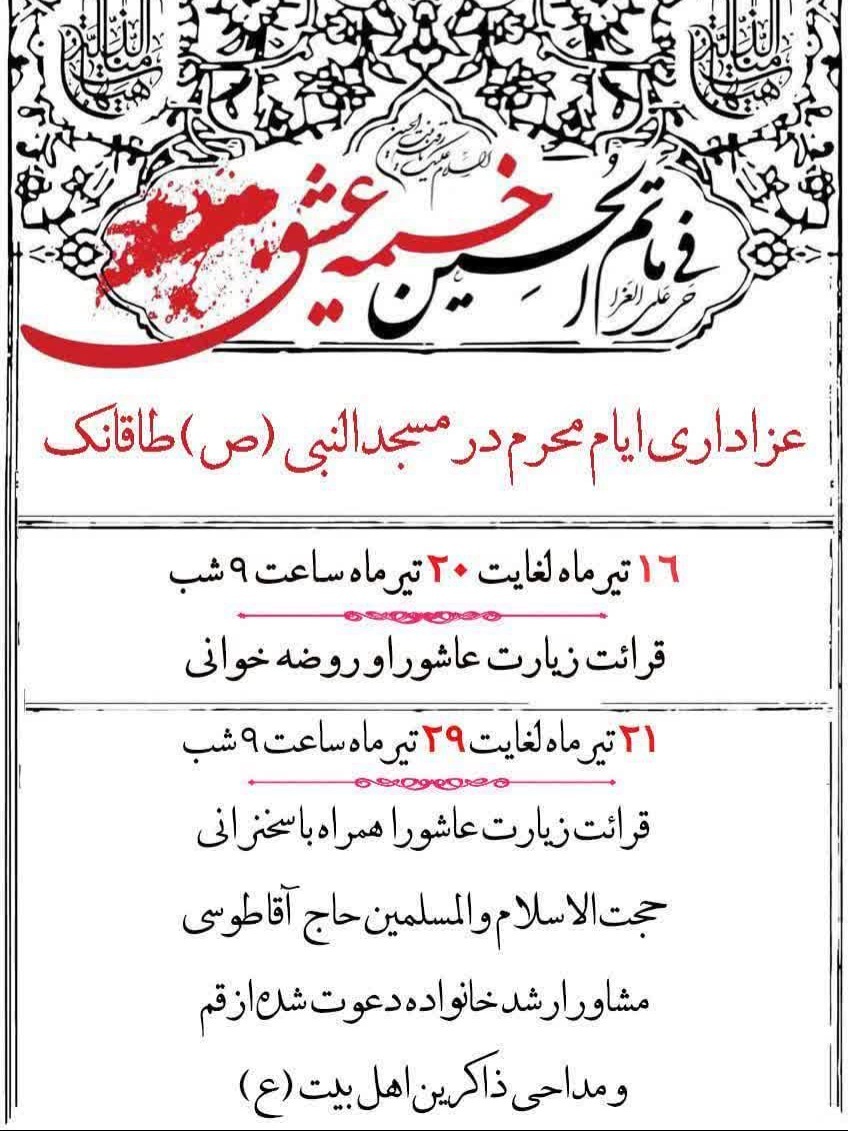 هیهات منا الذلة
هیهات منا الذلة
السلام علیک یا رقیه بنت الحسین
فی ماتم الحسین
حی علی العزا
خیمه عشق
عزاداری ایام محرم در مسجدالنبی (ص) طاقانک
۱۶ تیر ماه لغایت ۲۰ تیر ماه ساعت ۹ شب
قرائت زیارت عاشورا و روضه خوانی
۲۱ تیر ماه لغایت ۲۹ تیر ماه ساعت ۹ شب
قرائت زیارت عاشورا همراه با سخنرانی
حجت الاسلام والمسلمین حاج آقا طوسی
مشاور ارشد خانواده دعوت شده از قم
و مداحی ذاکرین اهل بیت (ع)